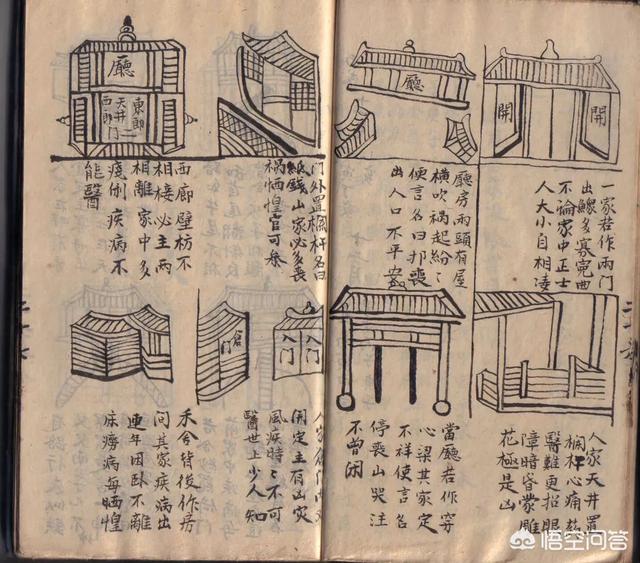 開
開
一家若作兩門
出鰥多寡寃曲
不論家中正士
人大小自相凌
廳
廳房兩頭有屋
橫吹禍起紛〻
便言名曰喪
出人口不平
人家天井置
欄杆心痛
醫難更招眼
障暗昏蒙雕
花極是凶
當廳若作穿
心梁其家定
不祥便言名
停喪山哭注
不曾闲
門外置欄杆名曰
紙錢山家必多喪
禍恓惶官可
廳
東廊
天井
门
西廊
西廊壁枋不
相接必主兩
相離家中多
倒疾病不
能醫
入门
入门
门
人家
開定主有凶灾
風疾時〻不可
醫世上少人知
禾舍皆後作房
间其家疾病出
連年因卧不離
床癆病每恓惶
悟空问答